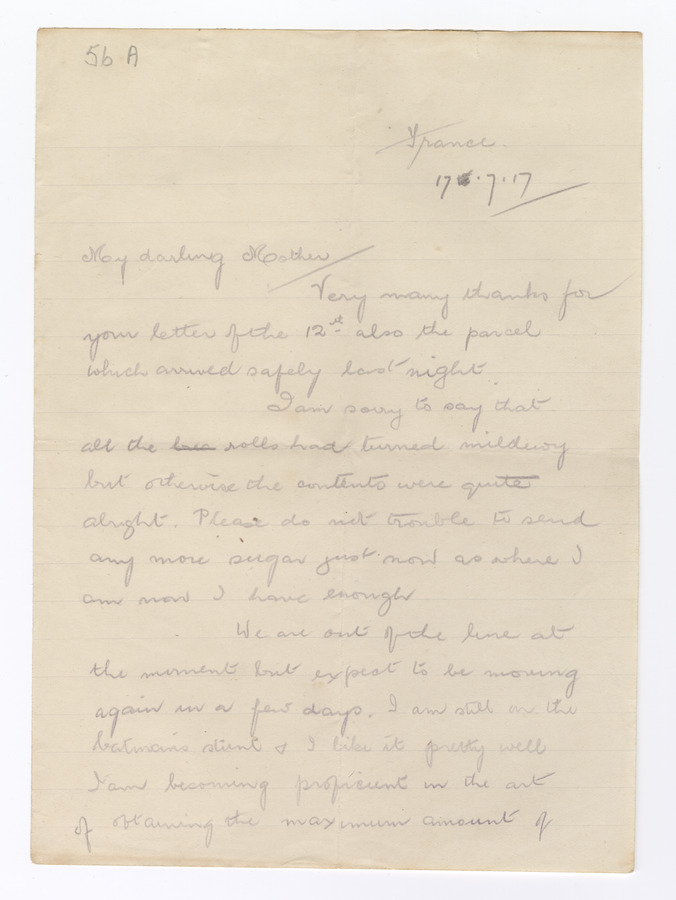 56 A
France.
17.7.17
My darling Mother
Very many thanks for
your letter of the 12th also the parcel
which arrived safely last night.
I am sorry to say that
all the rolls had turned mildewy
but otherwise the contents were quite
alright. Please do not trouble to send
any more sugar just now as where I
am now I have enough
We are out of the line at
the moment but expect to be moving
again in a few days. I am still on the
batman's stunt & I like it pretty well
I am becoming proficient in the art
of obtaining the maximum amount of